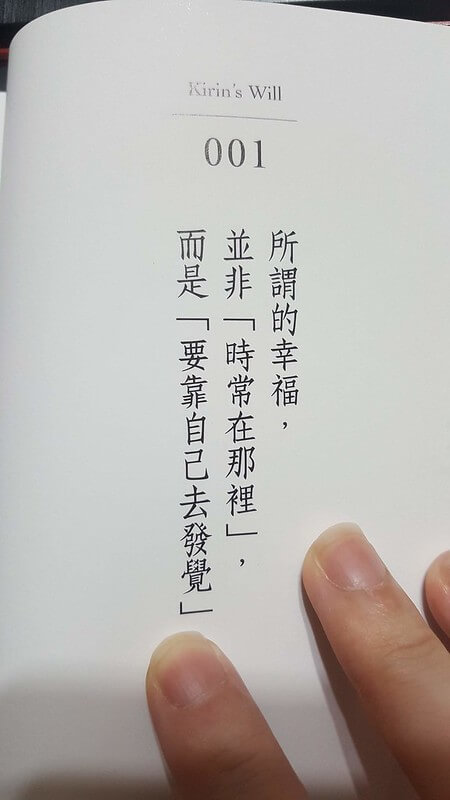 Kirin's Will
001
所謂的幸福，
並非「時常在那裡」，
而是「要靠自己去發覺」